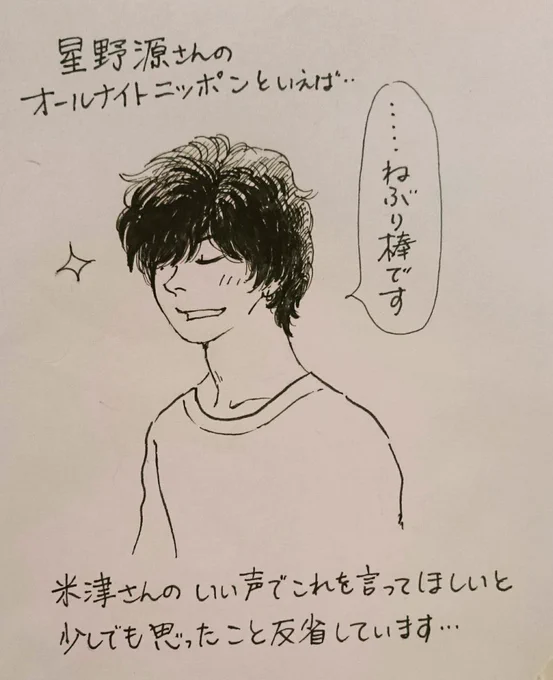 星野源さんの
オールナイトニッポンといえば‥
‥‥‥ねぶり棒です
米津さんの いい声でこれを言ってほしいと
少しでも思ったこと反省しています…